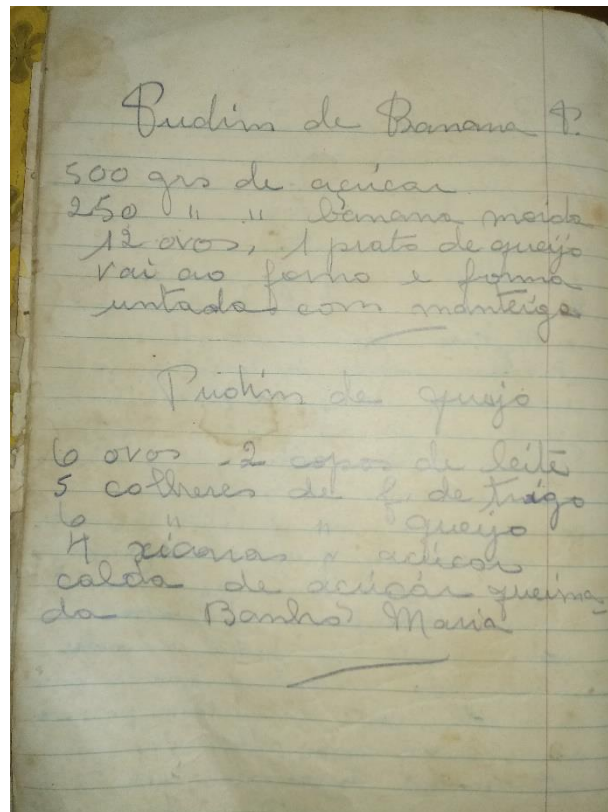 Pudim de Banana P.
500 grs de açúcar
250 " " banana moida
12 ovos, 1 prato de queijo
vai ao forno e forma
untada com manteiga
Pudim de queijo
6 ovos - 2 copos de leite
5 colheres de f. de trigo
6 " " queijo
4 xícaras " açúcar
calda de açúcar queima-
da Banho Maria